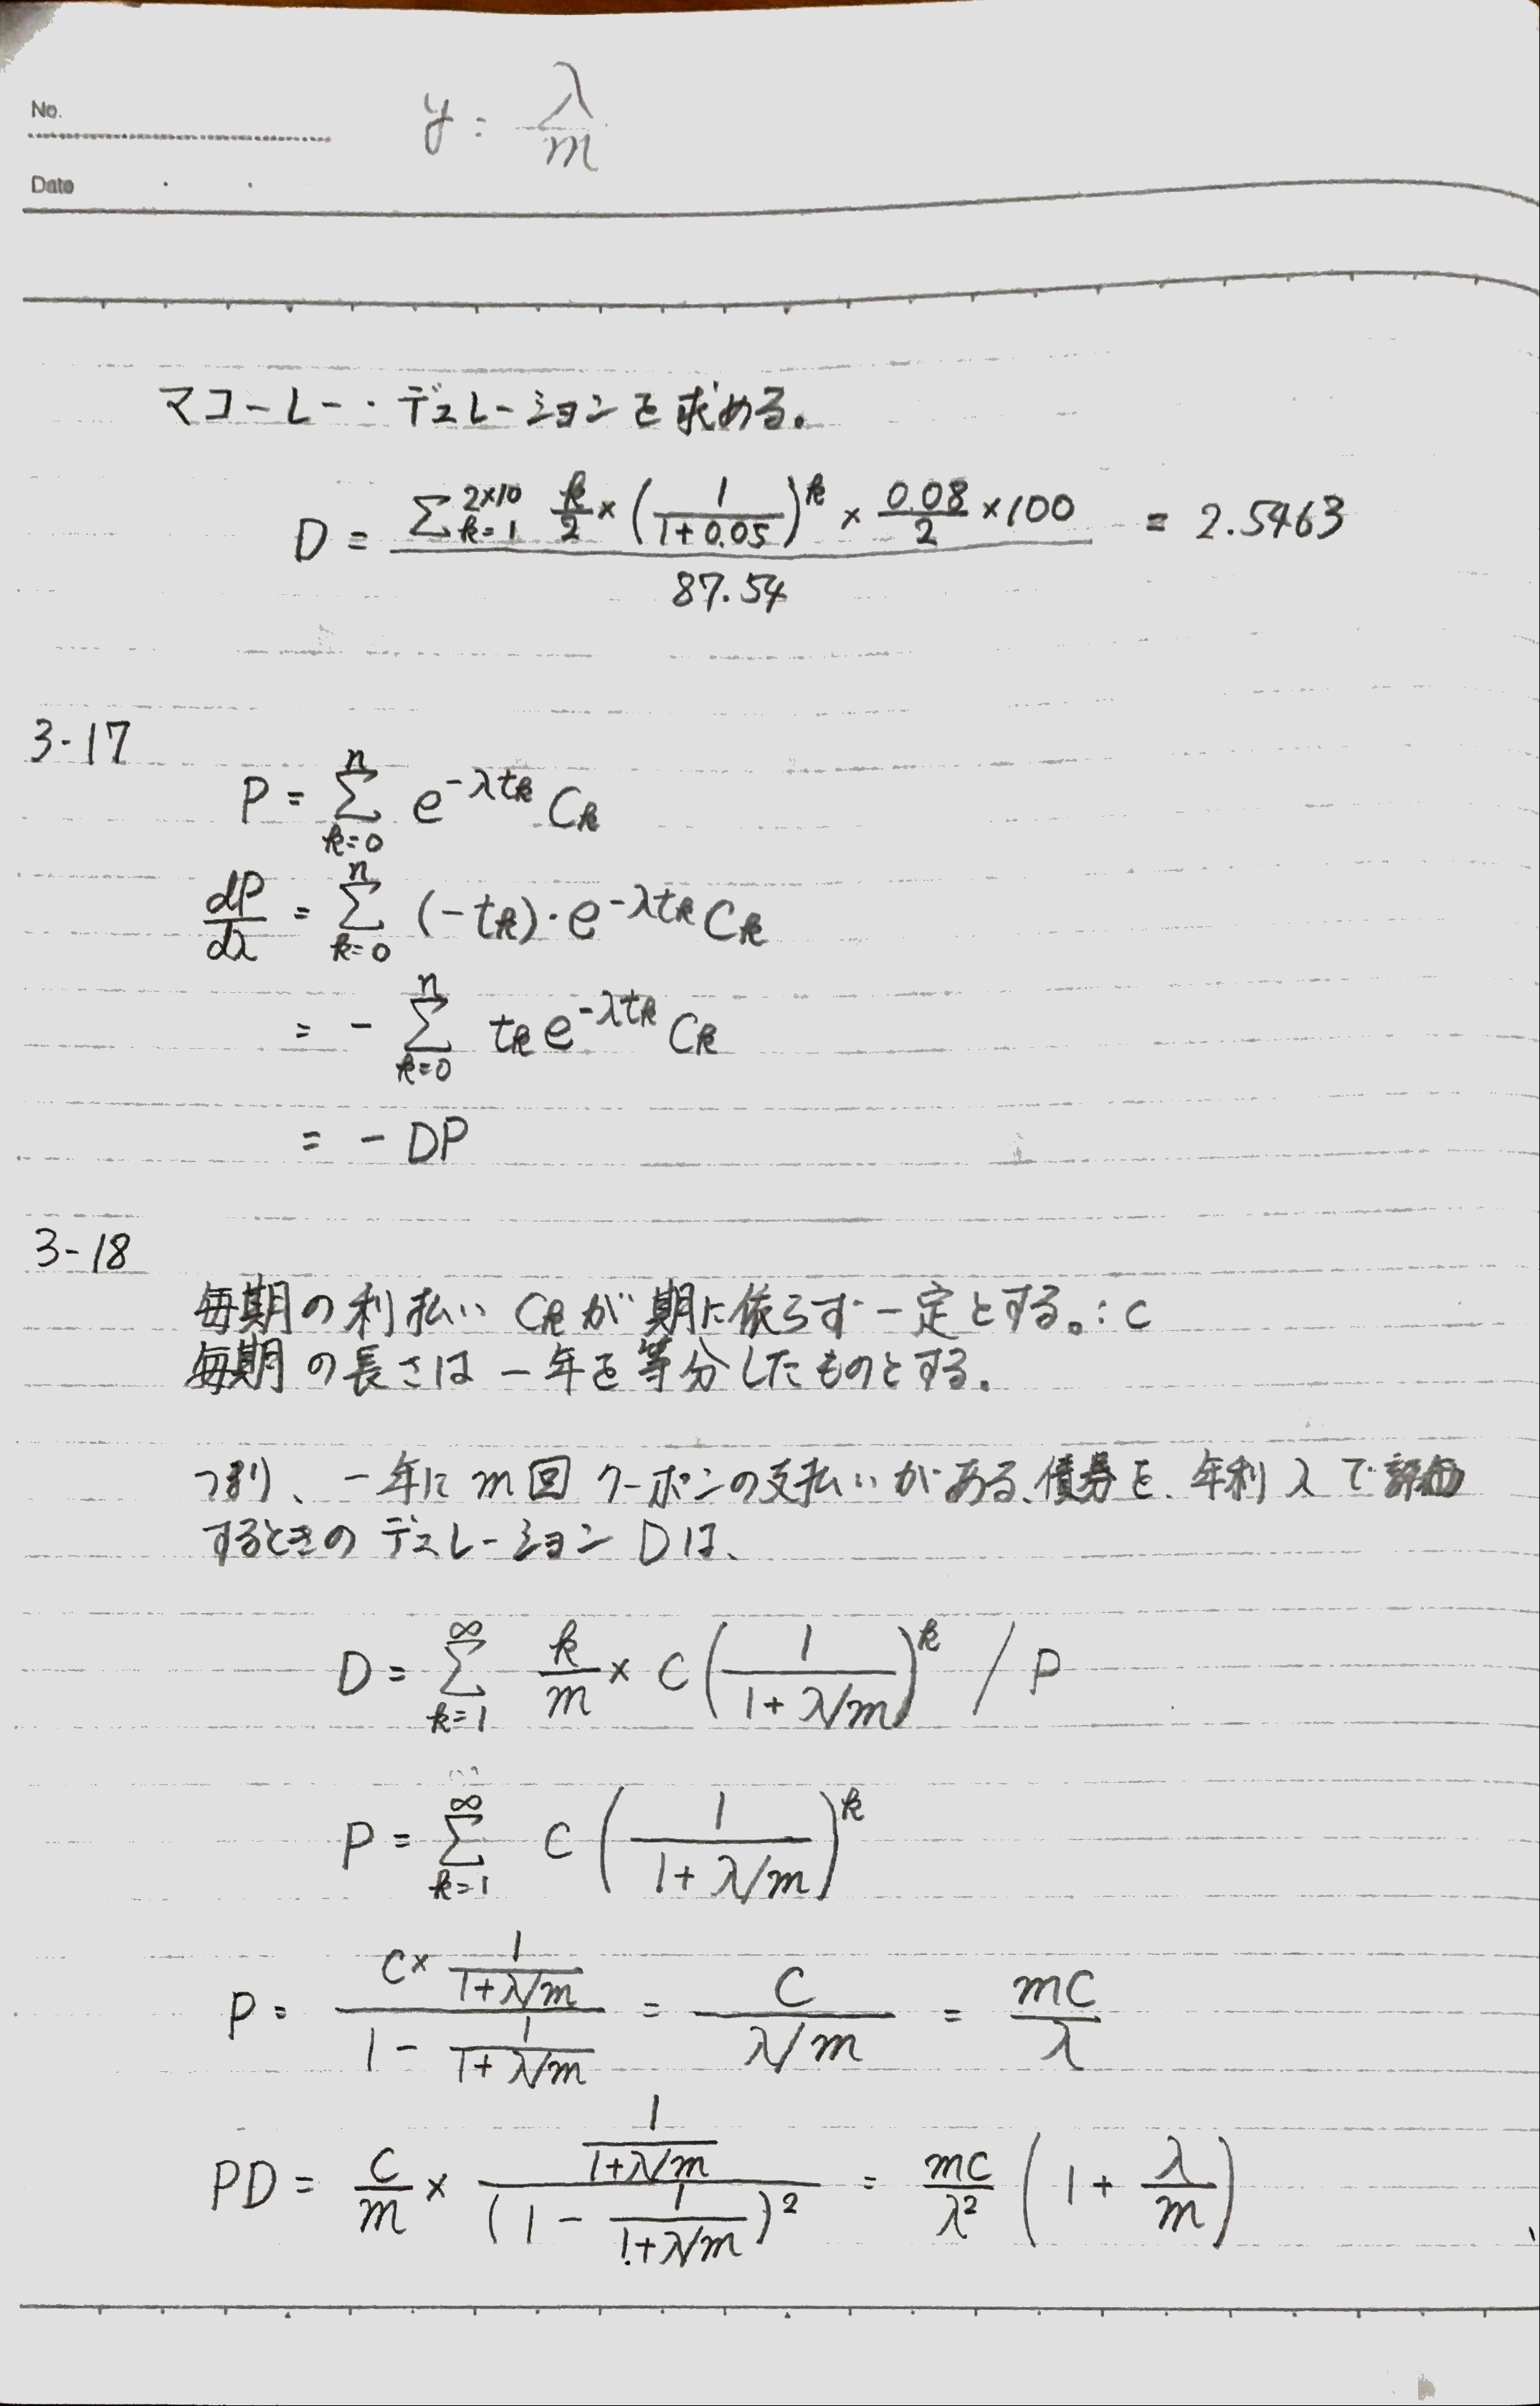 No.
y = λ/m
Date
マコーレー・デュレーションを求める。
D = (∑_{k=1}^{2×10} k/2 × (1/(1+0.05))^k × 0.08/2 × 100) / 87.54 = 2.5463
3-17
P = ∑_{k=0}^{n} e^{-λt_k} C_k
dP/dλ = ∑_{k=0}^{n} (-t_k)・e^{-λt_k} C_k
= - ∑_{k=0}^{n} t_k e^{-λt_k} C_k
= - DP
3-18
毎期の利払い C_k が期に依らず一定とする。: C
毎期の長さは一年を等分したものとする。
つまり、一年に m回 クーポンの支払いがある、債券を、年利 λ で評価
するときの デュレーション Dは、
D = ∑_{k=1}^{∞} k/m × C (1/(1+λ/m))^k / P
P = ∑_{k=1}^{∞} C (1/(1+λ/m))^k
P = (C × 1/(1+λ/m)) / (1 - 1/(1+λ/m)) = C/(λ/m) = mC/λ
PD = C/m × (1/(1+λ/m)) / (1 - 1/(1+λ/m))^2 = mC/λ^2 (1 + λ/m)